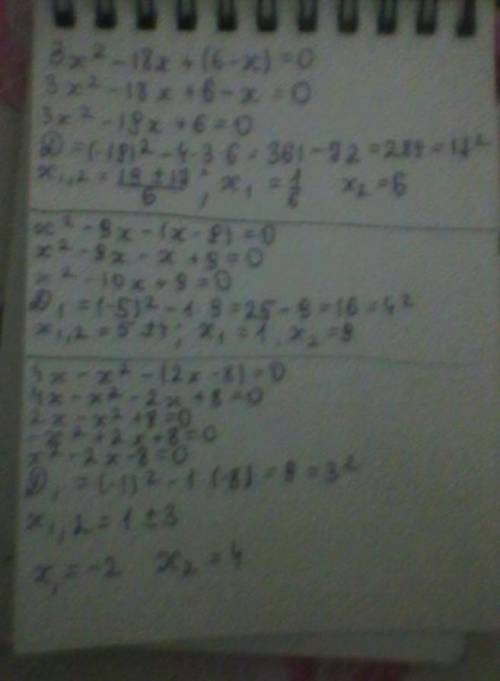 3x² - 18x + (6 - x) = 0
3x² - 18x + 6 - x = 0
3x² - 19x + 6 = 0
D = (-19)² - 4·3 6 = 361 - 72 = 289 = 17²
x₁,₂ = (19 ± 17)/6 ; x₁ = 1/6 x₂ = 6
x² - 9x - (x - 9) = 0
x² - 9x - x + 9 = 0
x² - 10x + 9 = 0
D₁ = (-5)² - 1·9 = 25 - 9 = 16 = 4²
x₁,₂ = 5 ± 4 ; x₁ = 1, x₂ = 9
4x - x² - (2x - 8) = 0
4x - x² - 2x + 8 = 0
2x - x² + 8 = 0
-x² + 2x + 8 = 0
x² - 2x - 8 = 0
D₁ = (-1)² - 1·(-8) = 9 = 3²
x₁,₂ = 1 ± 3
x₁ = -2 x₂ = 4